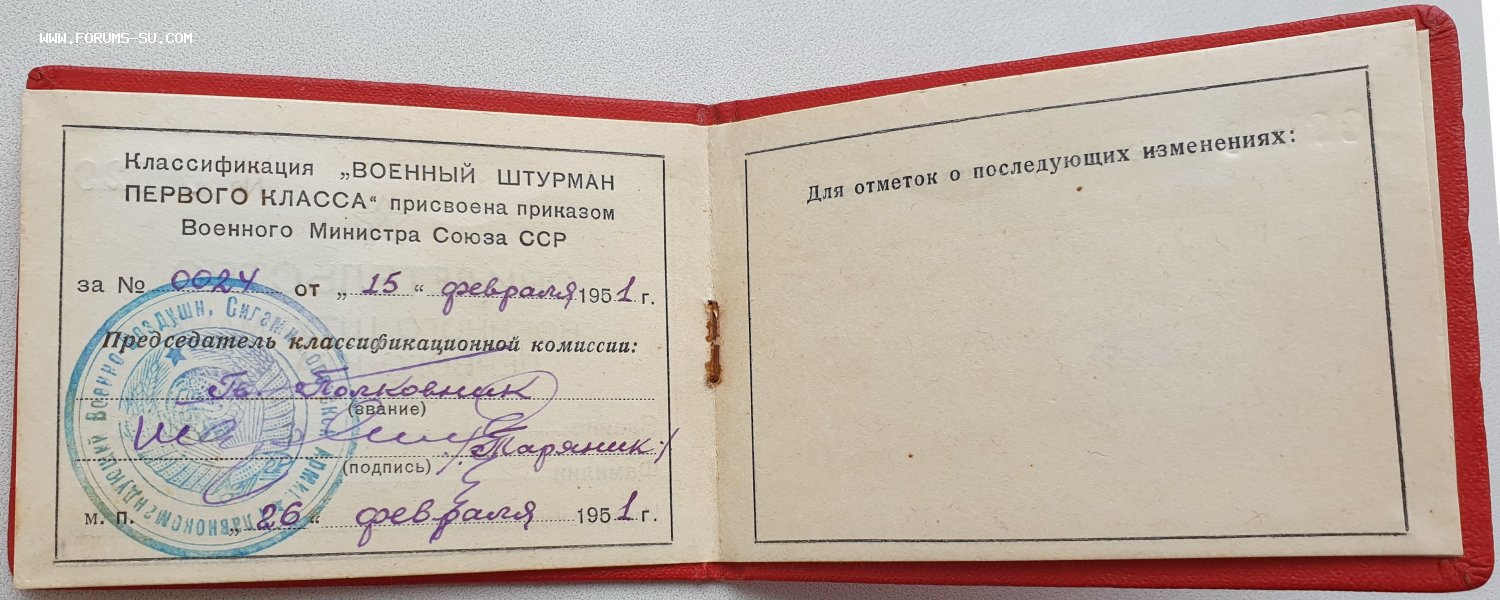 WWW.FORUMS-SU.COM
Классификация „ВОЕННЫЙ ШТУРМАН
ПЕРВОГО КЛАССА“ присвоена приказом
Военного Министра Союза ССР
за № 0024 от „15“ февраля 1951 г.
Председатель классификационной комиссии:
Гв. Полковник
(звание)
/Таряник/
(подпись)
м. п. „26“ февраля 1951 г.
Главнокомандующий Военно-воздушн. Силами Советской Армии
Для отметок о последующих изменениях: